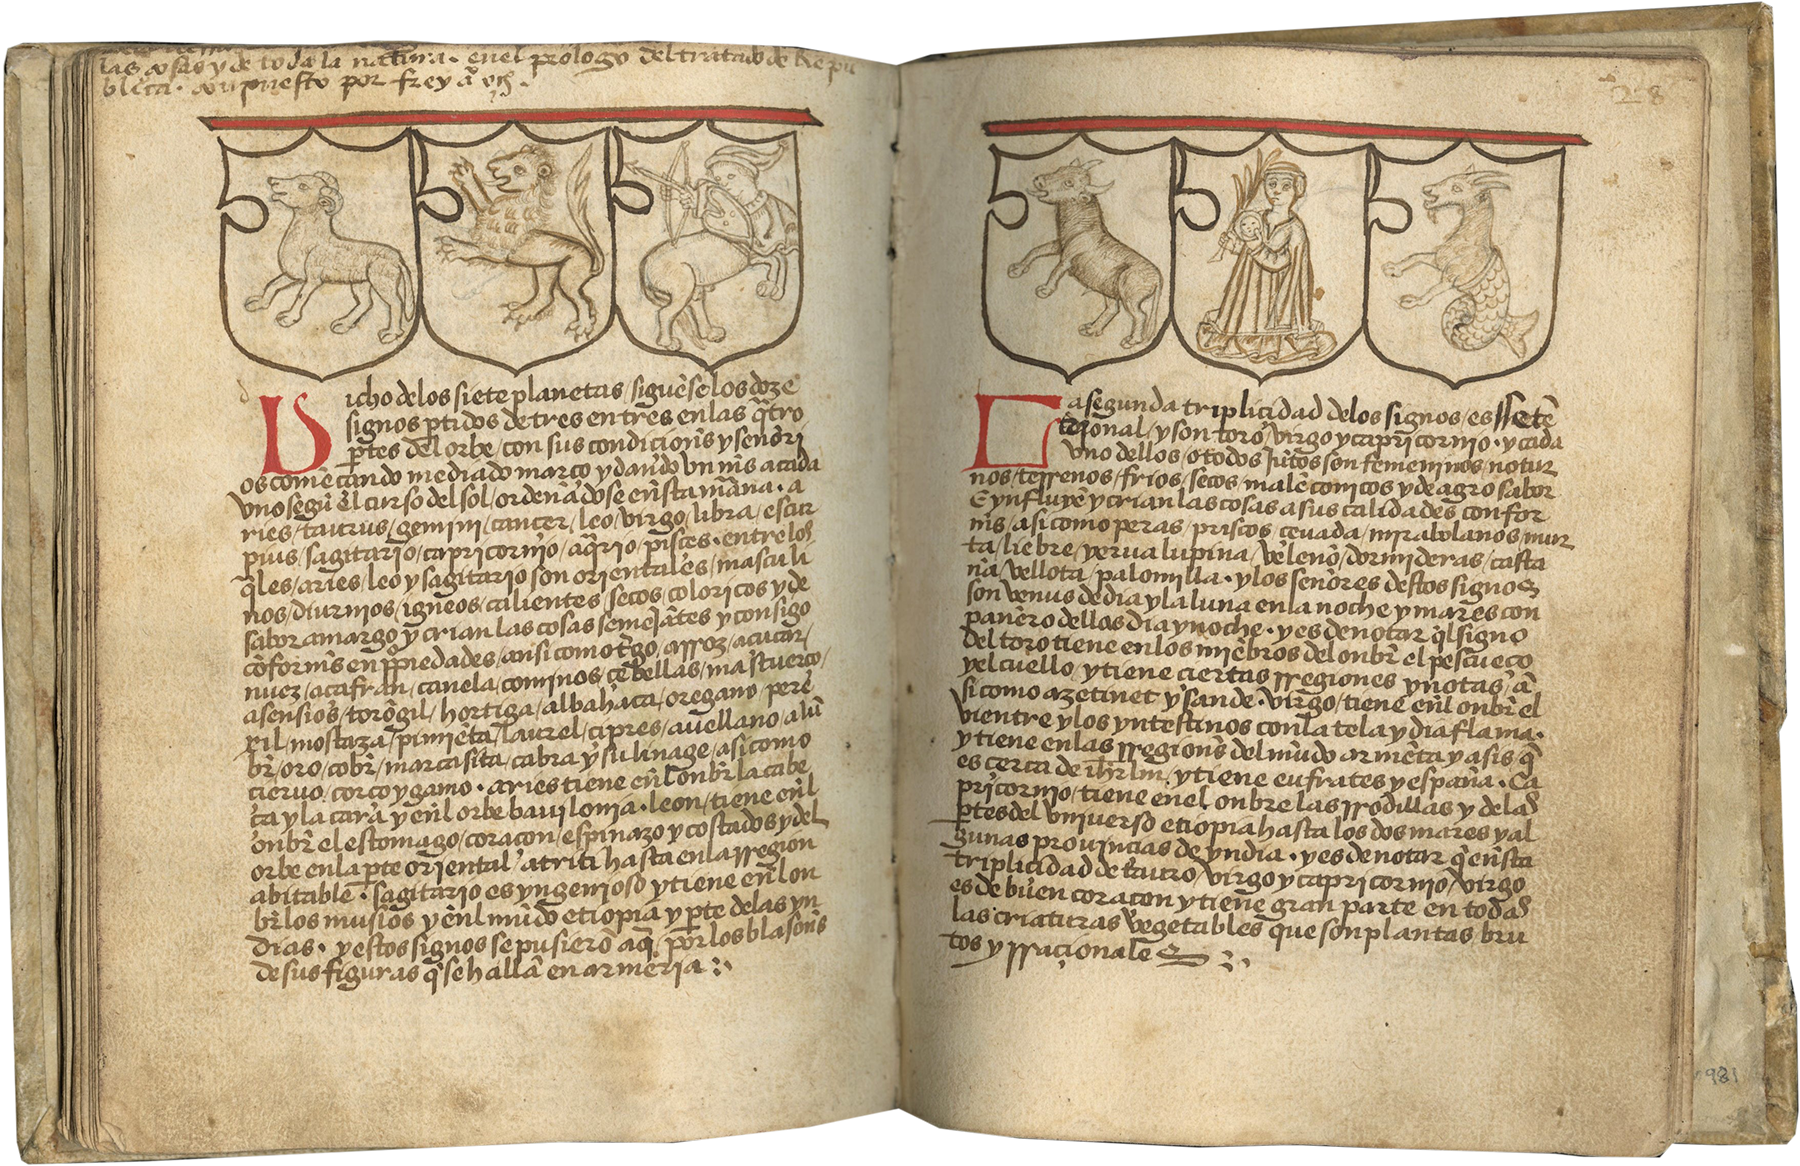 las cosas y de toda la natura · enel prologo del tratado de Repu
blica · conpuesto por frey
28
Dicho delos siete planetas / siguēse los doze
signos ꝑtidos de tres en tres en las q̄tro
ꝑtes del orbe / con sus condicion̄s y señori
os comēcando mediado marco y dādo vn m̄s a cada
vno segū el curso del sol / ordenādose en̄sta man̄a · a
ries / taurus / gemini / cancer / leo / virgo / libra / escur
pius / sagitario / capricornio / aq̄rio / pisces · entre los
q̄les / aries / leo y sagitario son orientales / masculi
nos / diurnos / igneos / calientes / secos / coloricos y de
sabor amargo y crian las cosas semejātes y consigo
cōform̄s en ꝓpiedades / ansi como trigo / arroz / acucar /
nuez / acafran / canela / cominos / cebollas / mastuerco /
asensios / torōgil / hortiga / albahaca / oregano / pere
xil / mostaza / pimiēta / laurel / cipres / auellano / alū
br̄ / oro / cobr̄ / marcasita / cabra y su linage / asi como
cieruo / corco y gamo · aries tiene en̄l onbr̄ la cabe
ca y la cara y en̄l orbe bauilonia · leon / tiene en̄l
onbr̄ el estomago / coracon / espinazo y costados y del
orbe en la ꝑte oriental atriti hasta en la rregion
abitable · sagitario es yngenioso y tiene en̄l on
br̄ los muslos y en̄l mūdo etiopia y ꝑte de las yn
dias · y estos signos se pusierō aq̄ por los blason̄s
de sus figuras q̄ se hallā en armeria :·
La segunda triplicidad delos signos / es ssetē
trional / y son toro / virgo y capricornio · y cada
vno dellos / o todos jūtos son femeninos / notur
nos / terrenos / frios / secos / malēconicos y de agro sabor
E ynfluyē y crian las cosas a sus calidades confor
m̄s / asi como peras / priscos / ceuada / mirabolanos / mur
ta / liebre / yerua lupina / veleño / dormideras / casta
ña / vellota / palomilla · y los señores destos signos
son venus de dia y la luna en la noche y mares con
pañero dellos dia y noche · y es de notar q̄l signo
del toro tiene en los miēbros del onbr̄ el pescueco
y el cuello / y tiene ciertas rregiones ynotas / ā
si como azetinet y sande · virgo / tiene en̄l onbr̄ el
vientre y los yntestinos con la tela y diaflama ·
y tiene en las rregion̄s del mūdo armēta y asis q̄
es cerca de ih̄rlm̄ / y tiene eufrates y españa · Ca
pricornio / tiene en el onbre las rrodillas y de las
ꝑtes del vniuerso etiopia hasta los dos mares y al
gunas prouincias de yndia · y es de notar q̄ en̄sta
triplicidad de tauro / virgo y capricornio / virgo
es de buen coracon y tiene gran parte en todas
las criaturas vegetables que son plantas bru
tos y rracionales :·
981